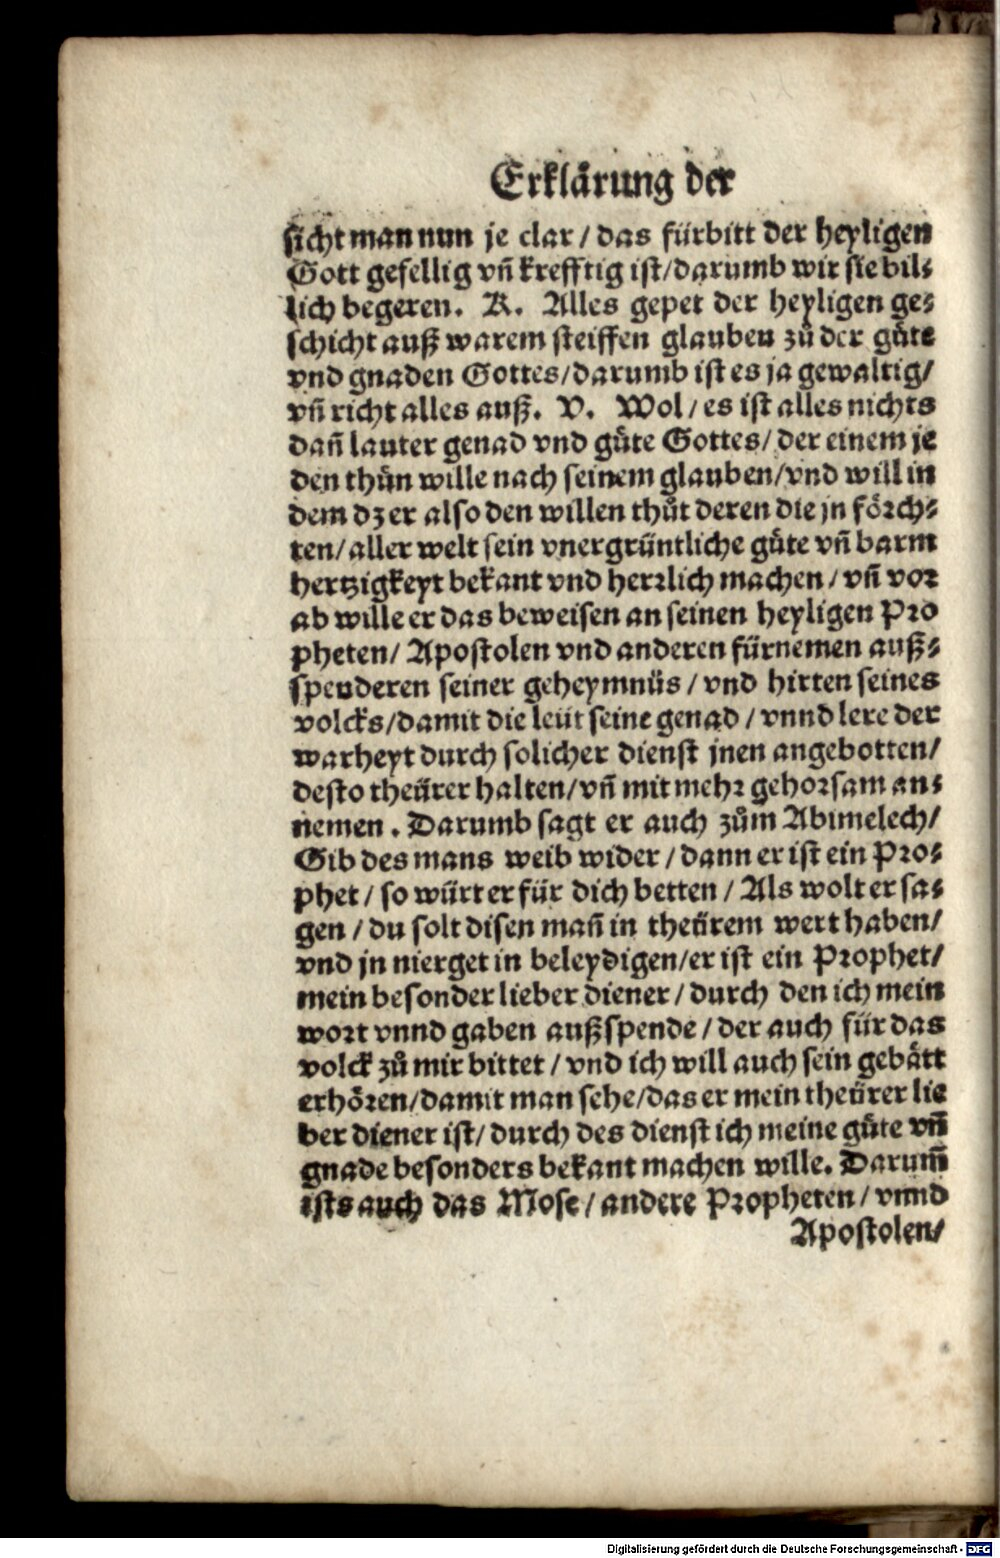 Erklårung der
sicht man nun je clar / das fürbitt der heyligen
Gott gefellig vñ krefftig ist/darumb wir sie bil⸗
lich begeren. K. Alles gepet der heyligen ge⸗
schicht auß warem steiffen glauben zů der gůte
vnd gnaden Gottes/darumb ist es ja gewaltig/
vñ richt alles auß. V. Wol / es ist alles nichts
dañ lauter genad vnd gůte Gottes/ der einem je
den thůn wille nach seinem glauben/vnd will in
dem dz er also den willen thůt deren die jn fȯrch⸗
ten/ aller welt sein vnergrüntliche gůte vñ barm
hertzigkeyt bekant vnd herrlich machen / vñ vor
ab wille er das beweisen an seinen heyligen Pro
pheten/ Apostolen vnd anderen fürnemen auß⸗
spenderen seiner geheymnüs / vnd hirten seines
volcks/damit die leüt seine genad / vnnd lere der
warheyt durch solicher dienst jnen angebotten/
desto theürer halten/vñ mit mehr gehorsam an⸗
nemen . Darumb sagt er auch zům Abimelech/
Gib des mans weib wider / dann er ist ein Pro⸗
phet / so würt er für dich betten / Als wolt er sa⸗
gen / du solt disen mañ in theürem wert haben/
vnd jn nierget in beleydigen/er ist ein Prophet/
mein besonder lieber diener / durch den ich mein
wort vnnd gaben außspende / der auch für das
volck zů mir bittet / vnd ich will auch sein gebått
erhȯren/damit man sehe/das er mein theürer lie
ber diener ist/ durch des dienst ich meine gůte vñ
gnade besonders bekant machen wille. Darum̃
ists auch das Mose / andere Propheten / vnnd
Apostolen/
Digitalisierung gefördert durch die Deutsche Forschungsgemeinschaft - DFG